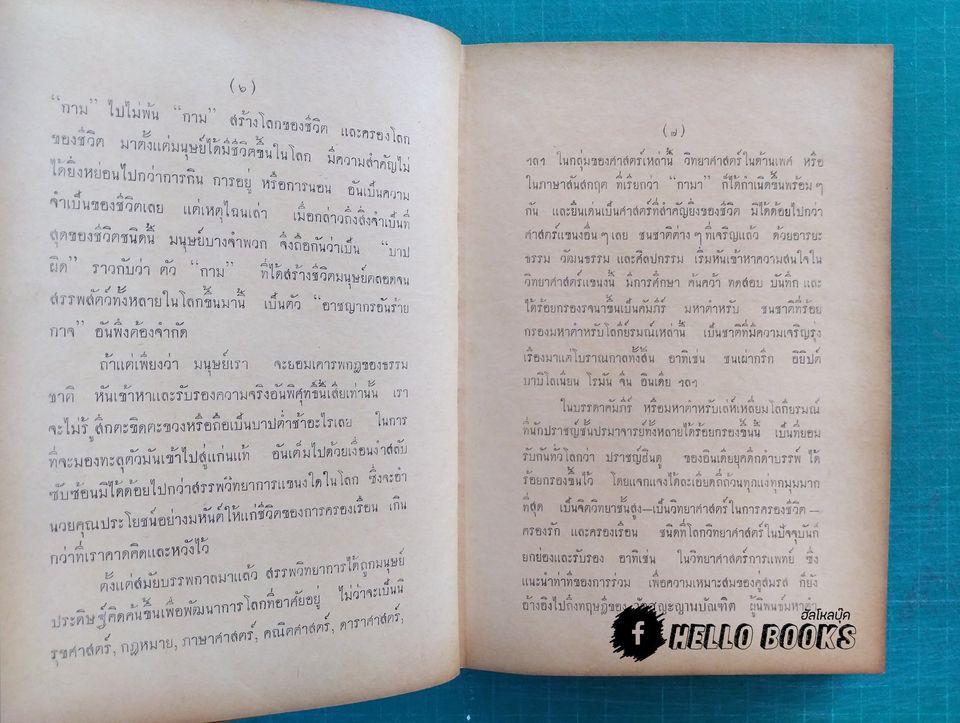 (๖)
“กาม” ไปไม่พ้น “กาม” สร้างโลกของชีวิต และครองโลก
ของชีวิต มาตั้งแต่มนุษย์ได้มีชีวิตขึ้นในโลก มีความสำคัญไม่
ได้ยิ่งหย่อนไปกว่าการกิน การอยู่ หรือการนอน อันเป็นความ
จำเป็นของชีวิตเลย แต่เหตุไฉนเล่า เมื่อกล่าวถึงสิ่งจำเป็นที่
สุดของชีวิตชนิดนี้ มนุษย์บางจำพวก จึงถือกันว่าเป็น “บาป
ผิด” ราวกับว่า ตัว “กาม” ที่ได้สร้างชีวิตมนุษย์ตลอดจน
สรรพสัตว์ทั้งหลายในโลกขึ้นมานี้ เป็นตัว “อาชญากรอันร้าย
กาจ” อันพึงต้องจำกัด
ถ้าแต่เพียงว่า มนุษย์เรา จะยอมเคารพกฎของธรรม
ชาติ หันเข้าหาและรับรองความจริงอันพิศุทธิ์นี้เสียเท่านั้น เรา
จะไม่รู้สึกตะขิดตะขวงหรือถือเป็นบาปต่ำช้าอะไรเลย ในการ
ที่จะมองทะลุตัวมันเข้าไปสู่แก่นแท้ อันเต็มไปด้วยเงื่อนงำสลับ
ซับซ้อนมิได้ด้อยไปกว่าสรรพวิทยาการแขนงใดในโลก ซึ่งจะอำ
นวยคุณประโยชน์อย่างมหันต์ให้แก่ชีวิตของการครองเรือน เกิน
กว่าที่เราคาดคิดและหวังไว้
ตั้งแต่สมัยบรรพกาลมาแล้ว สรรพวิทยาการได้ถูกมนุษย์
ประดิษฐ์คิดค้นขึ้นเพื่อพัฒนาการโลกที่อาศัยอยู่ ไม่ว่าจะเป็นนิ
รุขศาสตร์, กฎหมาย, ภาษาศาสตร์, คณิตศาสตร์, ดาราศาสตร์,
(๗)
ฯลฯ ในกลุ่มของศาสตร์เหล่านี้ วิทยาศาสตร์ในด้านเพศ หรือ
ในภาษาสันสกฤต ที่เรียกว่า “กามา” ก็ได้กำเนิดขึ้นพร้อมๆ
กัน และยืนเด่นเป็นศาสตร์ที่สำคัญยิ่งของชีวิต มิได้ด้อยไปกว่า
ศาสตร์แขนงอื่นๆ เลย ชนชาติต่างๆ ที่เจริญแล้ว ด้วยอารยะ
ธรรม วัฒนธรรม และศิลปกรรม เริ่มหันเข้าหาความสนใจใน
วิทยาศาสตร์แขนงนี้ มีการศึกษา ค้นคว้า ทดสอบ บันทึก และ
ได้ร้อยกรองรจนาขึ้นเป็นคัมภีร์ มหาตำหรับ ชนชาติที่ร้อย
กรองมหาตำหรับโลกีย์รมณ์เหล่านี้ เป็นชาติที่มีความเจริญรุ่ง
เรืองมาแต่โบราณกาลทั้งสิ้น อาทิเช่น ชนเผ่ากรีก อียิปต์
บาบิโลเนียน โรมัน จีน อินเดีย ฯลฯ
ในบรรดาคัมภีร์ หรือมหาตำหรับเล่ห์เหลี่ยมโลกียรมณ์
ที่นักปราชญ์ชั้นปรมาจารย์ทั้งหลายได้ร้อยกรองขึ้นนี้ เป็นที่ยอม
รับกันทั่วโลกว่า ปราชญ์ฮินดู ของอินเดียยุคดึกดำบรรพ์ ได้
ร้อยกรองขึ้นไว้ โดยแจกแจงได้ละเอียดถี่ถ้วนทุกแง่ทุกมุมมาก
ที่สุด เป็นจิตวิทยาชั้นสูง—เป็นวิทยาศาสตร์ในการครองชีวิต—
ครองรัก และครองเรือน ชนิดที่โลกวิทยาศาสตร์ในปัจจุบันก็
ยกย่องและรับรอง อาทิเช่น ในวิทยาศาสตร์การแพทย์ ซึ่ง
แนะนำท่าที่ของการร่วม เพื่อความเหมาะสมของคู่สมรส ก็ยัง
อ้างอิงไปถึงทฤษฎีของ บัณฑิต ผู้นิพนธ์มหาตำ
ฮัลโหลบุ๊ค
HELLO BOOKS